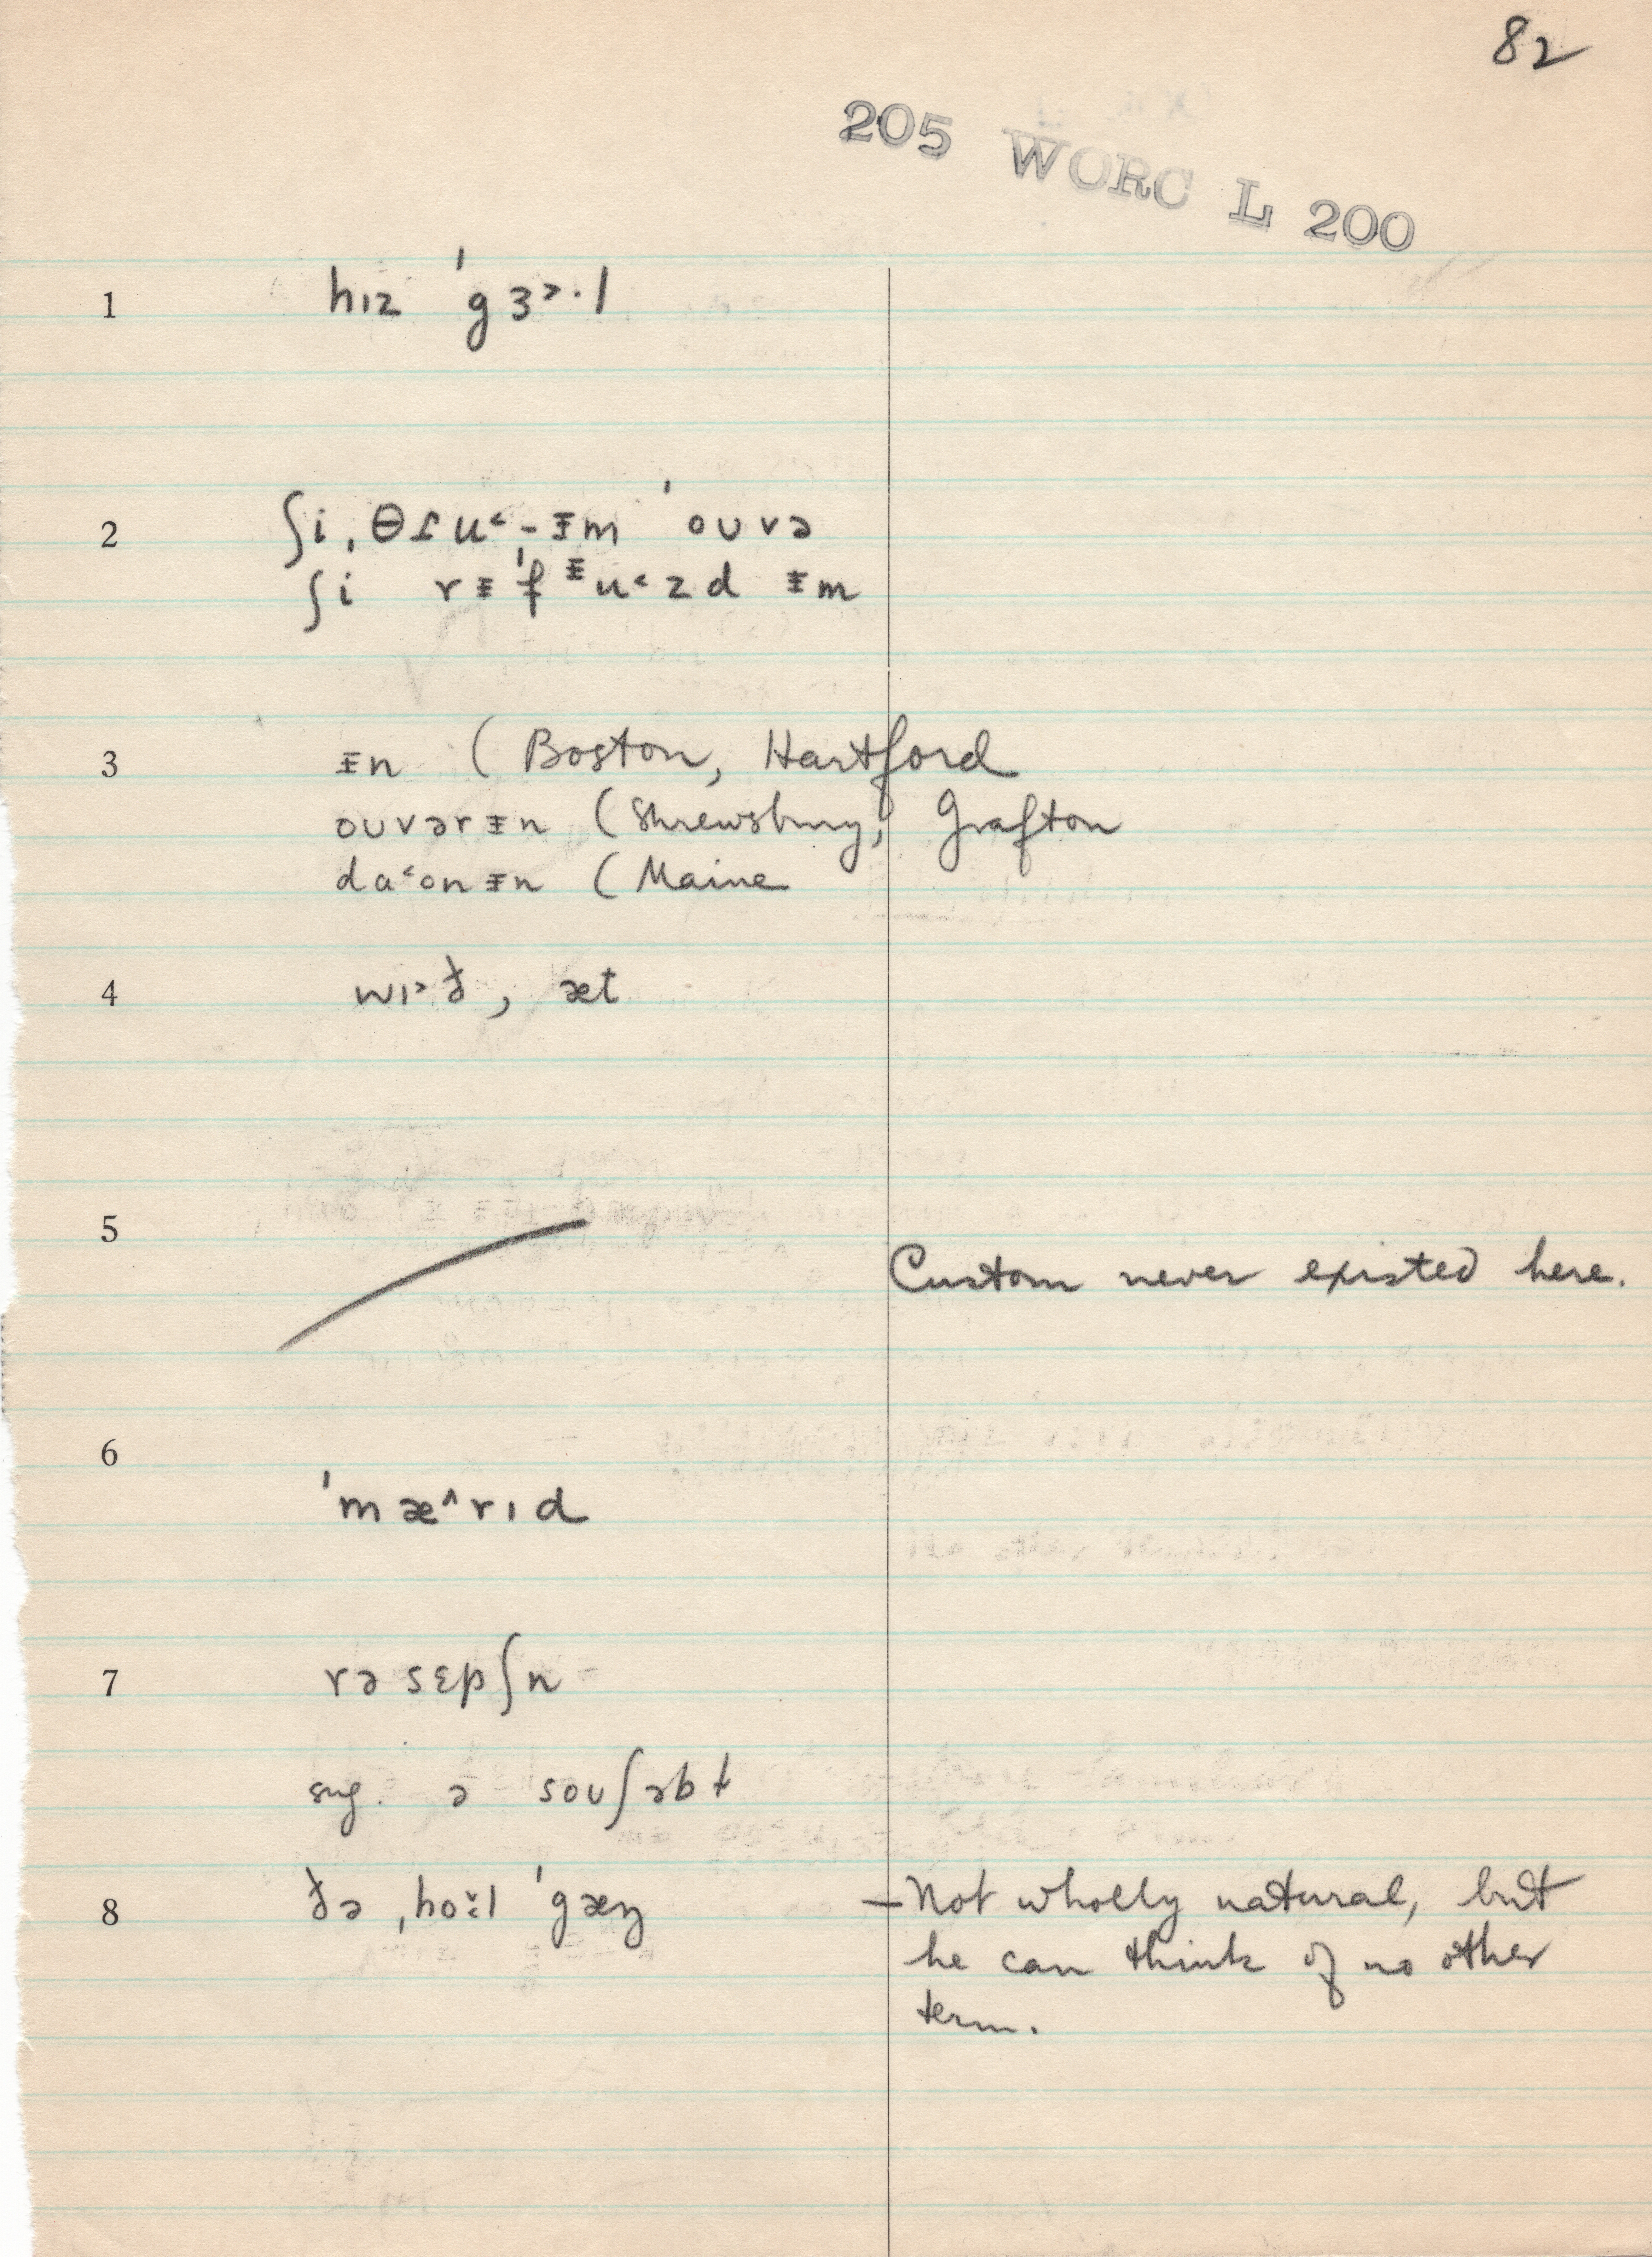 82
205 WORC L 200
1 hɪz ˈgɜ˃·l
2 ʃi ˌθɾu˂-ᵻm ˈoʊvə
ʃi rᵻˈfᵻu˂zd ᵻm
3 ᵻn (Boston, Hartford
oʊvərᵻn (Shrewsbury, Grafton
da˂onᵻn (Maine
4 wɪ˃ð, æt
5 Custom never existed here.
6 ˈmæ^rɪd
7 rəsɛpʃn
sug. ə soʊʃəbɫ
8 ðə ˌhǒ:l ˈgæŋ — Not wholly natural, but
he can think of no other
term.